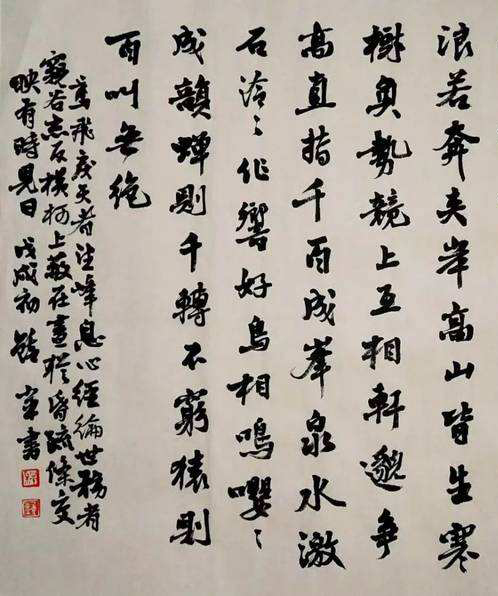 浪若奔夾岸高山皆生寒
樹負勢競上互相軒邈爭
高直指千百成峯泉水激
石泠〻作響好鳥相鳴嚶〻
成韻蟬則千轉不窮猿則
百叫無絕
鳶飛戾天者望峰息心經綸世務者
窺谷忘反橫柯上蔽在晝猶昏疏條交
映有時見日 戊戌初 書